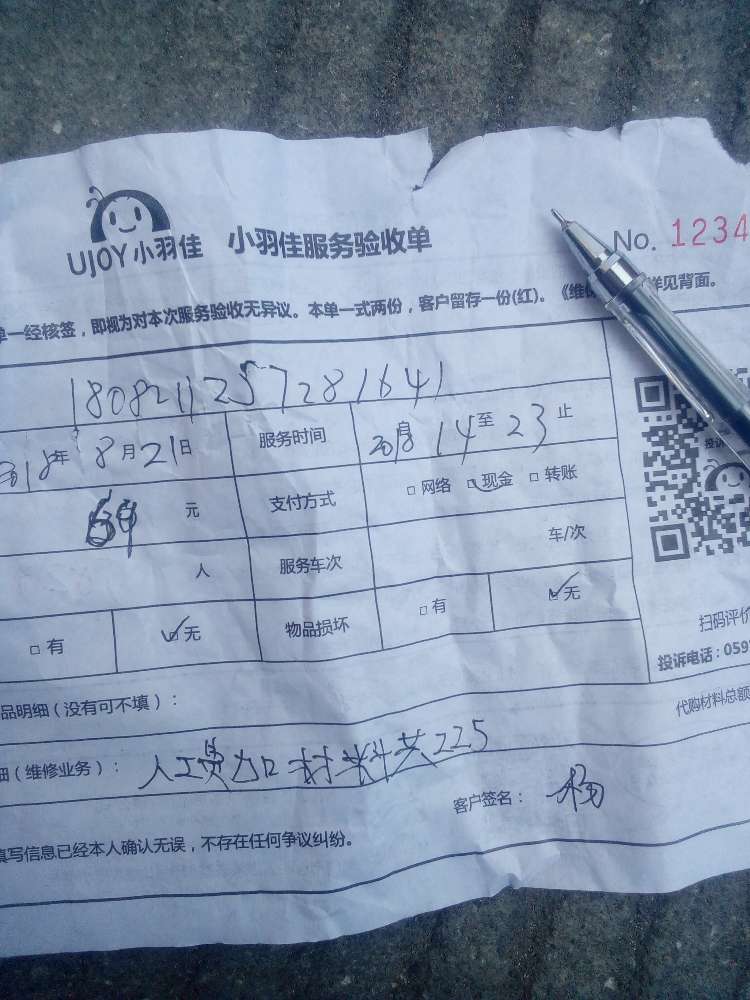 UJOY小羽佳 小羽佳服务验收单 No. 1234
单一经核签，即视为对本次服务验收无异议。本单一式两份，客户留存一份(红)。《维 详见背面。
1808211257281641
2018年 8月21日 服务时间 14至23止
元 支付方式 □网络 □现金 □转账
投诉
人 服务车次 车/次
□有 ☑无 物品损坏 □有 ☑无
扫码评价
投诉电话：059
品明细（没有可不填）： 代购材料总额
细（维修业务）： 人工费加材料共225
客户签名： 杨
填写信息已经本人确认无误，不存在任何争议纠纷。